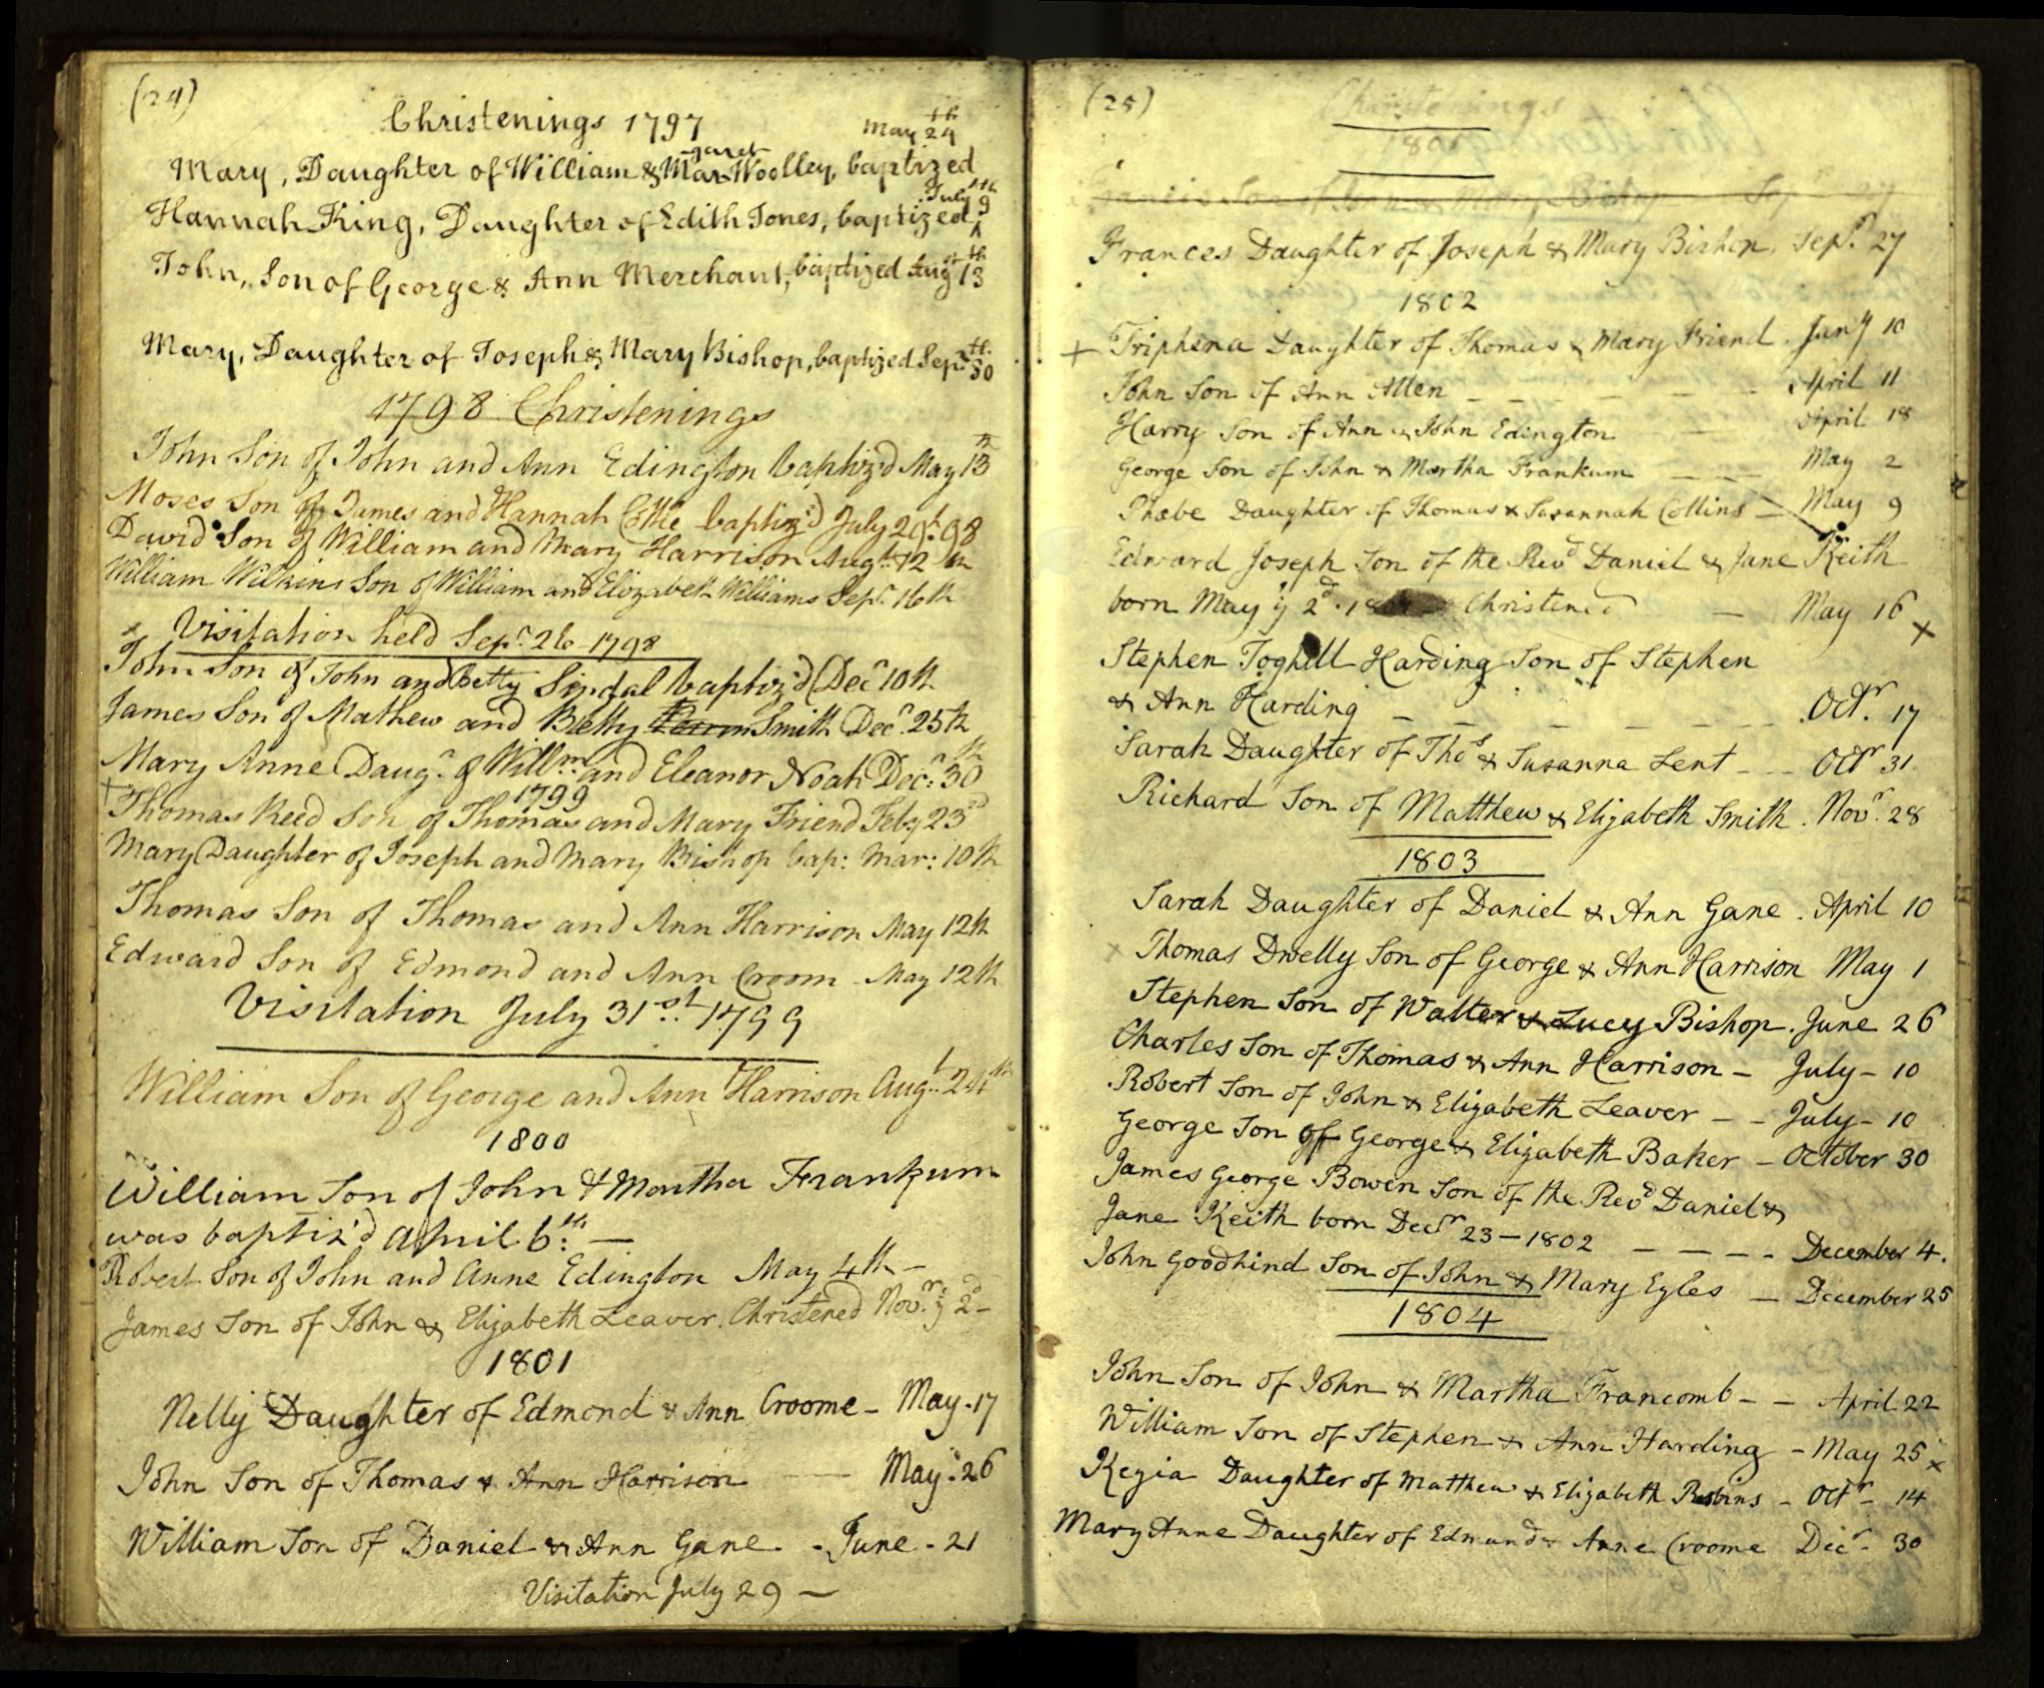 (24)
Christenings 1797
Mary, Daughter of William & Mar-garet Woolley, baptized May 24th
Hannah King, Daughter of Edith Jones, baptized July 9th
John, Son of George & Ann Merchant, baptized Augst 13th
Mary, Daughter of Joseph & Mary Bishop, baptized Sepr 30th
1798 Christenings
John Son of John and Ann Edington baptiz'd May 13th
Moses Son of James and Hannah Cottle baptiz'd July 29th 98
David Son of William and Mary Harrison Augt. 12th
William Wilkins Son of William and Elizabeth Williams Sepr. 16th
x Visitation held Sepr. 26 1798
John Son of John and Betty baptiz'd Decr 10th
James Son of Mathew and Betty Smith Decr. 25th
Mary Anne Daugr. of Willm. and Eleanor Noah Decr. 30th
1799
+ Thomas Reed Son of Thomas and Mary Friend Feby 23d
Mary Daughter of Joseph and Mary Bishop bap: Mar: 10th
Thomas Son of Thomas and Ann Harrison May 12th
Edward Son of Edmond and Ann Croom May 12th
Visitation July 31st. 1799
William Son of George and Ann Harrison Augt. 24th
1800
William Son of John & Martha Frankum
was baptiz'd April 6th. —
Robert Son of John and Anne Edington May 4th —
James Son of John & Elizabeth Leaver. Christened Novr. ye 2d —
1801
Nelly Daughter of Edmond & Ann Croome — May. 17
John Son of Thomas & Ann Harrison — May. 26
William Son of Daniel & Ann Gane. - June - 21
Visitation July 29 —
(25)
Christenings
1801
Frances Daughter of Joseph & Mary Bishop. Sepr. 27
1802
+ Triphena Daughter of Thomas & Mary Friend. Jany 10
John Son of Ann Allen — — — April 11
Harry Son of Ann & John Edington — April 18
George Son of John & Martha Frankum — — May 2
Phœbe Daughter of Thomas & Susannah Collins — May 9
Edward Joseph Son of the Revd Daniel & Jane Keith
born May ye 2d. 18 Christened — May 16 x
Stephen Toghill Harding Son of Stephen
& Ann Harding — — — — Octr. 17
Sarah Daughter of Thos & Susanna Lent — — Octr 31
Richard Son of Matthew & Elizabeth Smith. Novr. 28
1803
Sarah Daughter of Daniel & Ann Gane. April 10
x Thomas Dwelly Son of George & Ann Harrison May 1
Stephen Son of Walter & Lucy Bishop. June 26
Charles Son of Thomas & Ann Harrison — July — 10
Robert Son of John & Elizabeth Leaver — — July — 10
George Son of George & Elizabeth Baker — October 30
James George Bowen Son of the Revd Daniel &
Jane Keith born Decr 23 — 1802 — — — — December 4.
John Goodhind Son of John & Mary Eyles — December 25
1804
John Son of John & Martha Francomb — — April 22
William Son of Stephen & Ann Harding — May 25 x
Kezia Daughter of Matthew & Elizabeth Robins — Octr — 14
Mary Anne Daughter of Edmund & Anne Croome Decr — 30